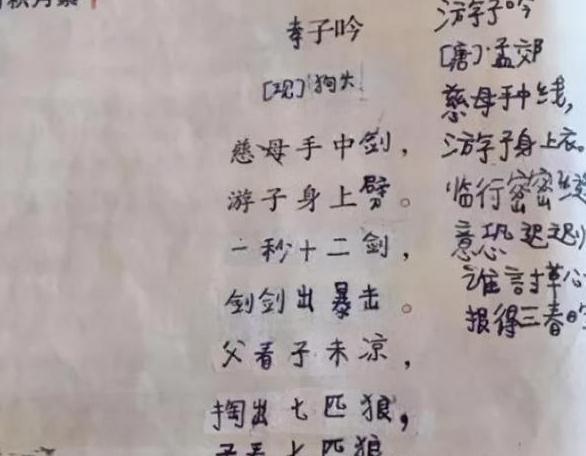 孝子吟
[现]狗大
慈母手中剑，
游子身上劈。
一秒十二剑，
剑剑出暴击。
父看子未凉，
掏出七匹狼，
子看七匹狼
游子吟
[唐]孟郊
慈母手中线，
游子身上衣。
临行密密缝
意恐迟迟归
谁討草心
报得三春